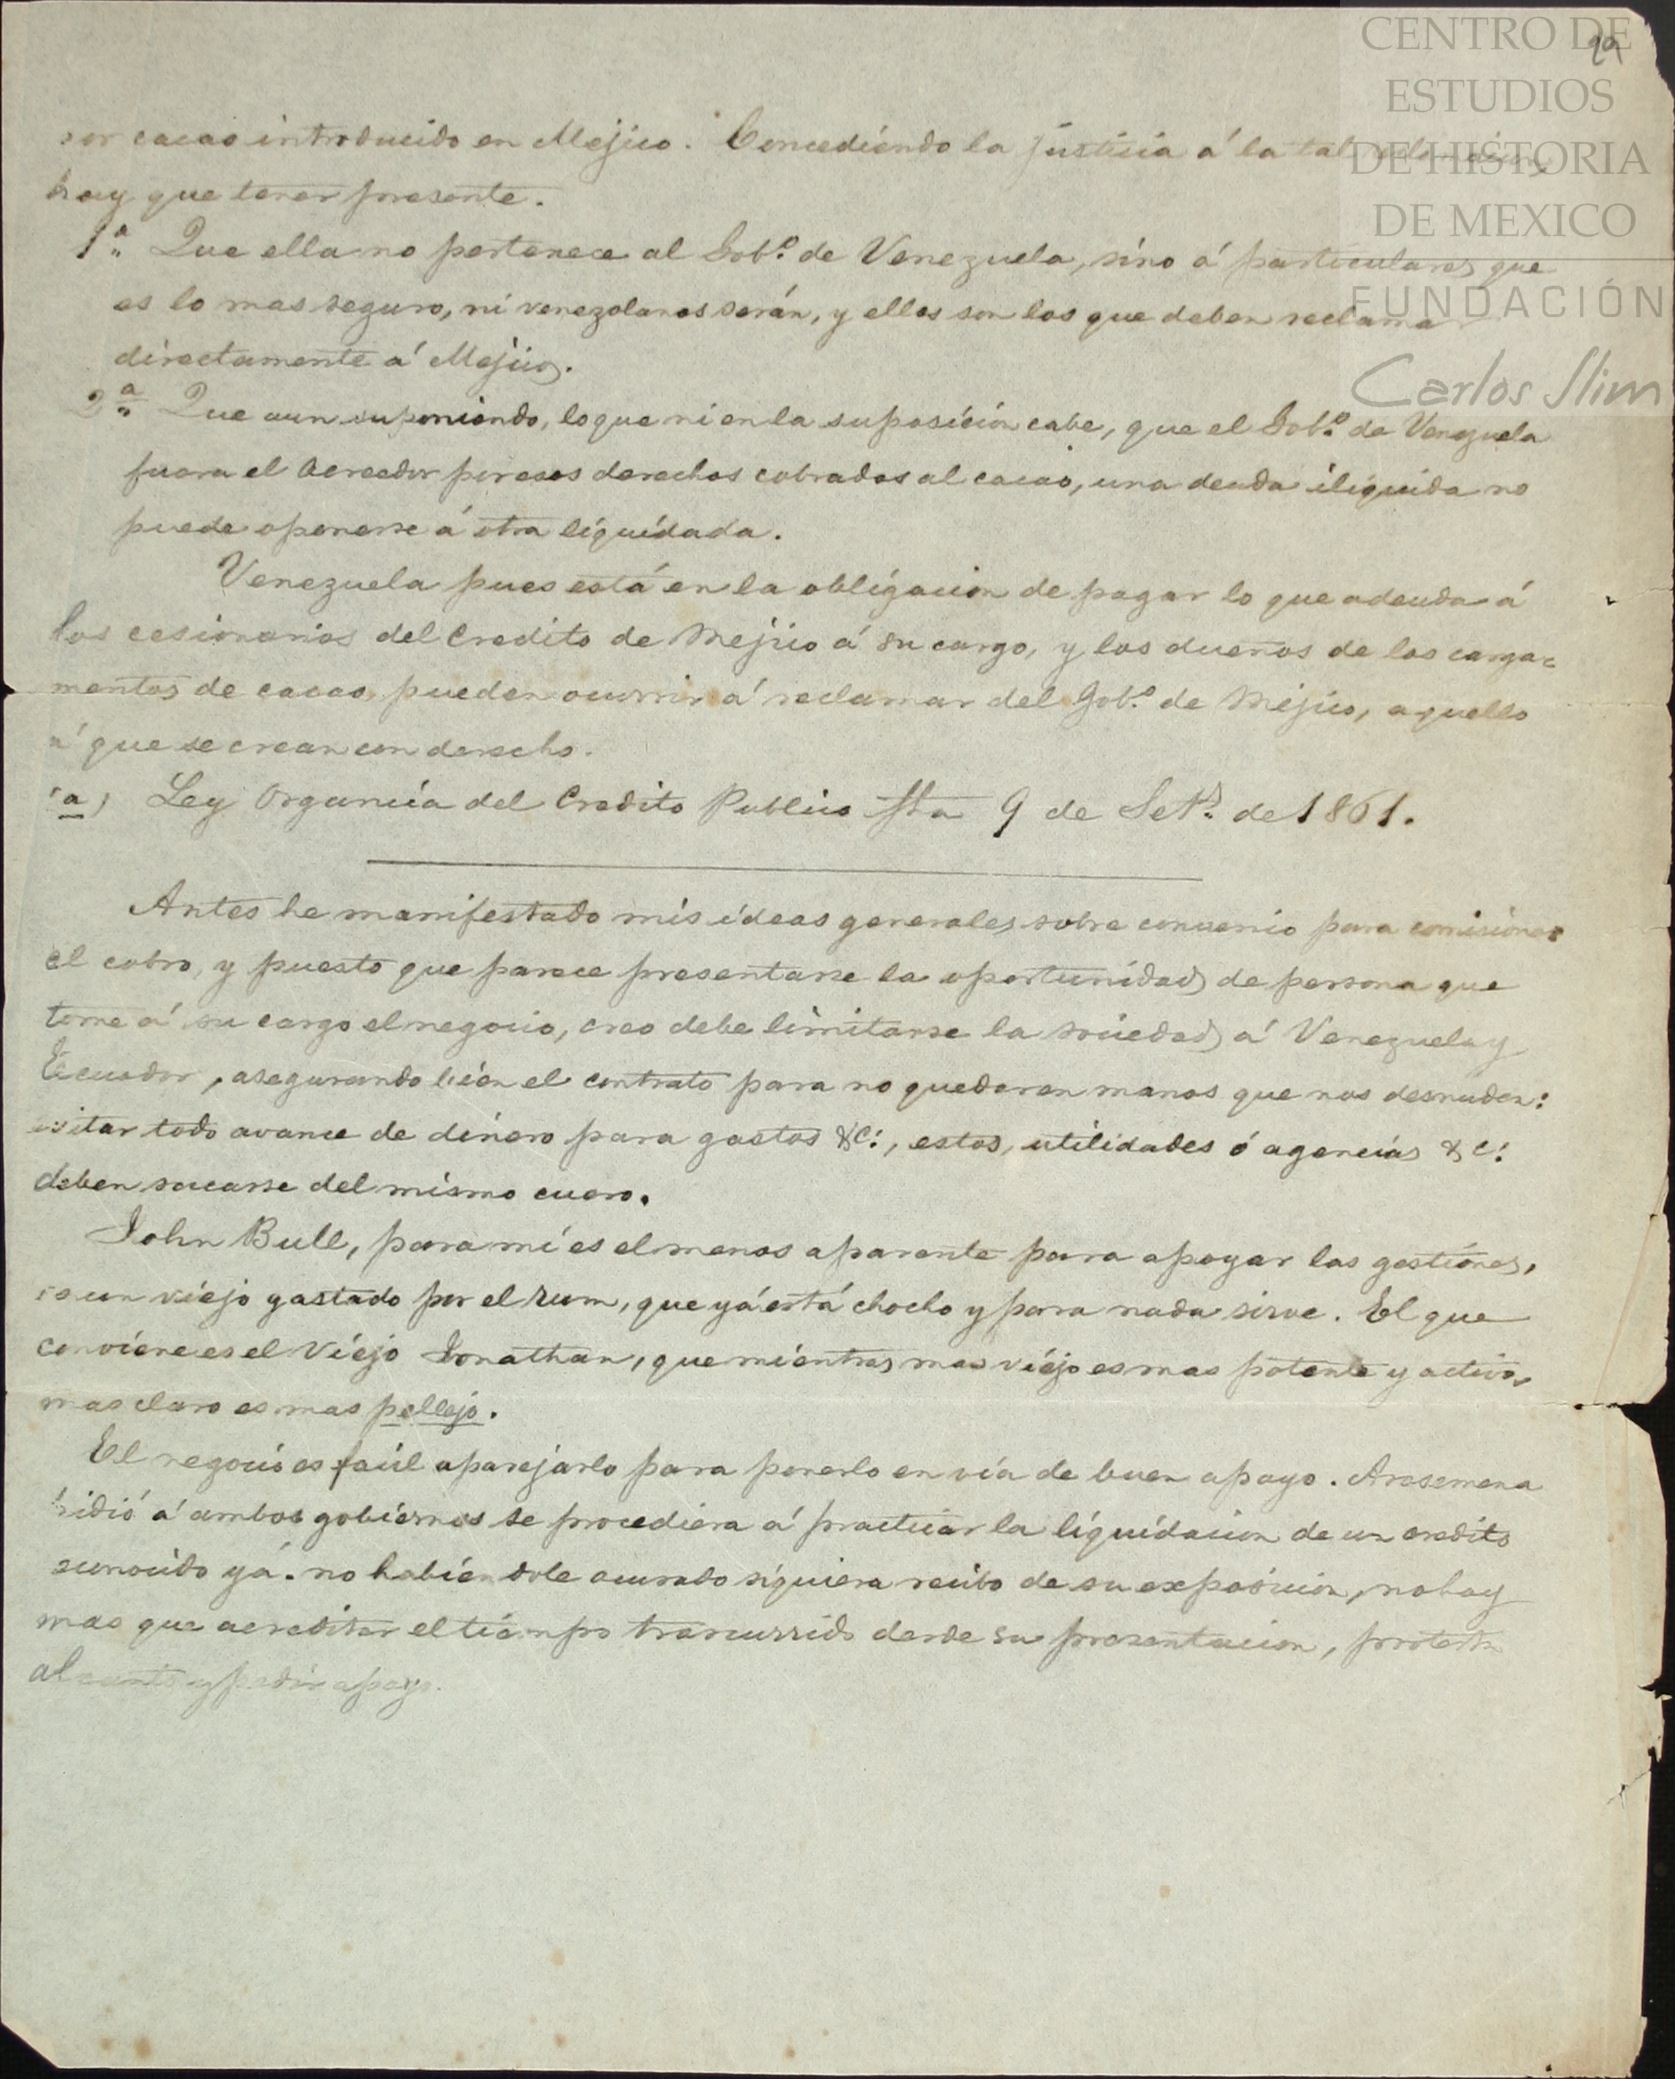 29
CENTRO DE
ESTUDIOS
DE HISTORIA
DE MEXICO
FUNDACIÓN
Carlos Slim
por cacao introducido en Mejico. Concediendo la justicia á la tal
hay que tener presente.
1ª. Que ella no pertenece al Gobº. de Venezuela, sino á particulares que
es lo mas seguro, ni venezolanos serán, y ellos son los que deben reclamar
directamente á Mejico.
2ª. Que aun suponiendo, lo que ni en la suposicion cabe, que el Gobº. de Venezuela
fuera el acreedor por esos derechos cobrados al cacao, una deuda iliquida no
puede oponerse á otra liquidada.
Venezuela pues está en la obligacion de pagar lo que adeuda á
los cesionarios del Credito de Mejico á su cargo, y los dueños de los carga=
mentos de cacao, pueden ocurrir á reclamar del Gobº. de Mejico, aquello
á que se crean con derecho.
(a) Ley Organica del Credito Publico fha 9 de Set. de 1861.
Antes he manifestado mis ideas generales sobre convenio para comisionar
el cobro, y puesto que parece presentarse la oportunidad de persona que
tome á su cargo el negocio, creo debe limitarse la sociedad á Venezuela y
Ecuador, asegurando bien el contrato para no quedar en manos que nos desnuden:
evitar todo avance de dinero para gastos &c:, estos, utilidades ó agencias &c:
deben sacarse del mismo cuero.
John Bull, para mi es el menos aparente para apoyar las gestiones,
es un viejo gastado por el rum, que yá está chocho y para nada sirve. El que
conviene es el Viejo Jonathan, que mientras mas viejo es mas potente y activo,
mas claro es mas pellejo.
El negocio es facil aparejarlo para ponerlo en via de buen apoyo. Arosemena
pidió á ambos gobiernos se procediera á practicar la liquidacion de un credito
conocido yá. no habiendole acusado siquiera recibo de su exposicion, no hay
mas que acreditar el tiempo trascurrido desde su presentacion, protesta
al canto y pedir apoyo.